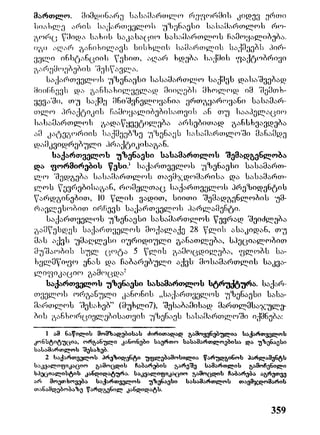 მართლო. მიმდინარე სასამართლო რეფორმის კიდევ ერთი
სიახლე არის საქართველოს უზენაესი სასამართლოს რო-
გორც წმიდა სახის საკასაციო სასამართლოს ჩამოყალიბება.
იგი აღარ განიხილავს სისხლის სამართლის საქმეებს პირ-
ველი ინსტანციის წესით, აღარ ხდება საქმის ფაქტობრივი
გარემოებების შესწავლა.
საქართველოს უზენაესი სასამართლო საქმეს დასაშვებად
მიიჩნევს და განსახილველად მიიღებს მხოლოდ იმ შემთხ-
ვევაში, თუ საქმე მნიშვნელოვანია ერთგვაროვანი სასამარ-
თლო პრაქტიკის ჩამოყალიბებისათვის ან თუ სააპელაციო
სასამართლოს გადაწყვეტილება არსებითად განსხვავდება
ამ კატეგორიის საქმეებზე უზენაეს სასამართლოში მანამდე
დამკვიდრებული პრაქტიკისაგან.
საქართველოს უზენაესი სასამართლოს შემადგენლობა
და ფორმირების წესი.¹ საქართველოს უზენაესი სასამართ-
ლო შედგება სასამართლოს თავმჯდომარისა და სასამართ-
ლოს წევრებისაგან, რომელთაც საქართველოს პრეზიდენტის
წარდგინებით, 10 წლის ვადით, სიითი შემადგენლობის უმ-
რავლესობით ირჩევს საქართველოს პარლამენტი.
საქართველოს უზენაესი სასამართლოს წევრად შეიძლება
გამწესდეს საქართველოს მოქალაქე 28 წლის ასაკიდან, თუ
მას აქვს უმაღლესი იურიდიული განათლება, სპეციალობით
მუშაობის სულ ცოტა 5 წლის გამოცდილება, ფლობს სა-
ხელმწიფო ენას და ჩაბარებული აქვს მოსამართლის საკვა-
ლიფიკაციო გამოცდა²
საქართველოს უზენაესი სასამართლოს სტრუქტურა. საქარ-
თველოს ორგანული კანონის „საქართველოს უზენაესი სასა-
მართლოს შესახებ“ (მუხლი7), შესაბამისად მართლმსაჯულე-
ბის განხორციელებისათვის უზენაეს სასამართლოში იქმნება:
1 ამ ნაწილის მომზადებისას ძირითადად გამოყენებულია საქართველოს
კონსტიტუცია, ორგანული კანონები საერთო სასამართლოებისა და უზენაესი
სასამართლოს შესახებ.
2 საქართველოს პრეზიდენტი უფლებამოსილია წარუდგინოს პარლამენტს
საკვალიფიკაციო გამოცდის ჩაბარების გარეშე სამართლის გამოჩენილი
სპეციალისტის კანდიდატურა. საკვალიფიკაციო გამოცდის ჩაბარება აგრეთვე
არ მოეთხოვება საქართველოს უზენაესი სასამართლოს თავმჯდომარის
თანამდებობაზე წარდგენილ კანდიდატს.
359